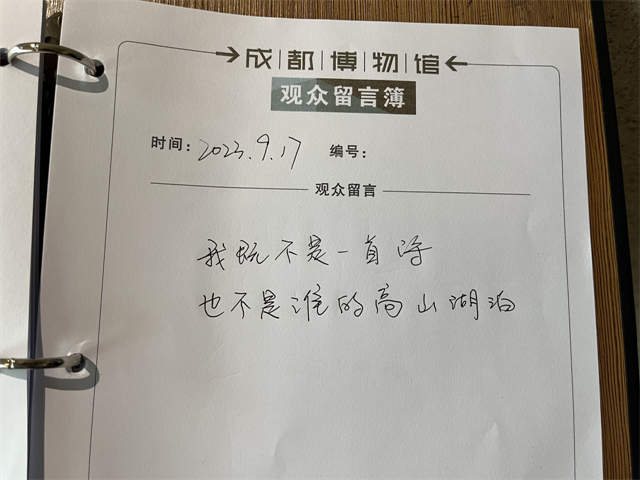 成都博物馆
观众留言簿
时间：2023.9.17 编号：
观众留言
我既不是一首诗
也不是谁的高山湖泊